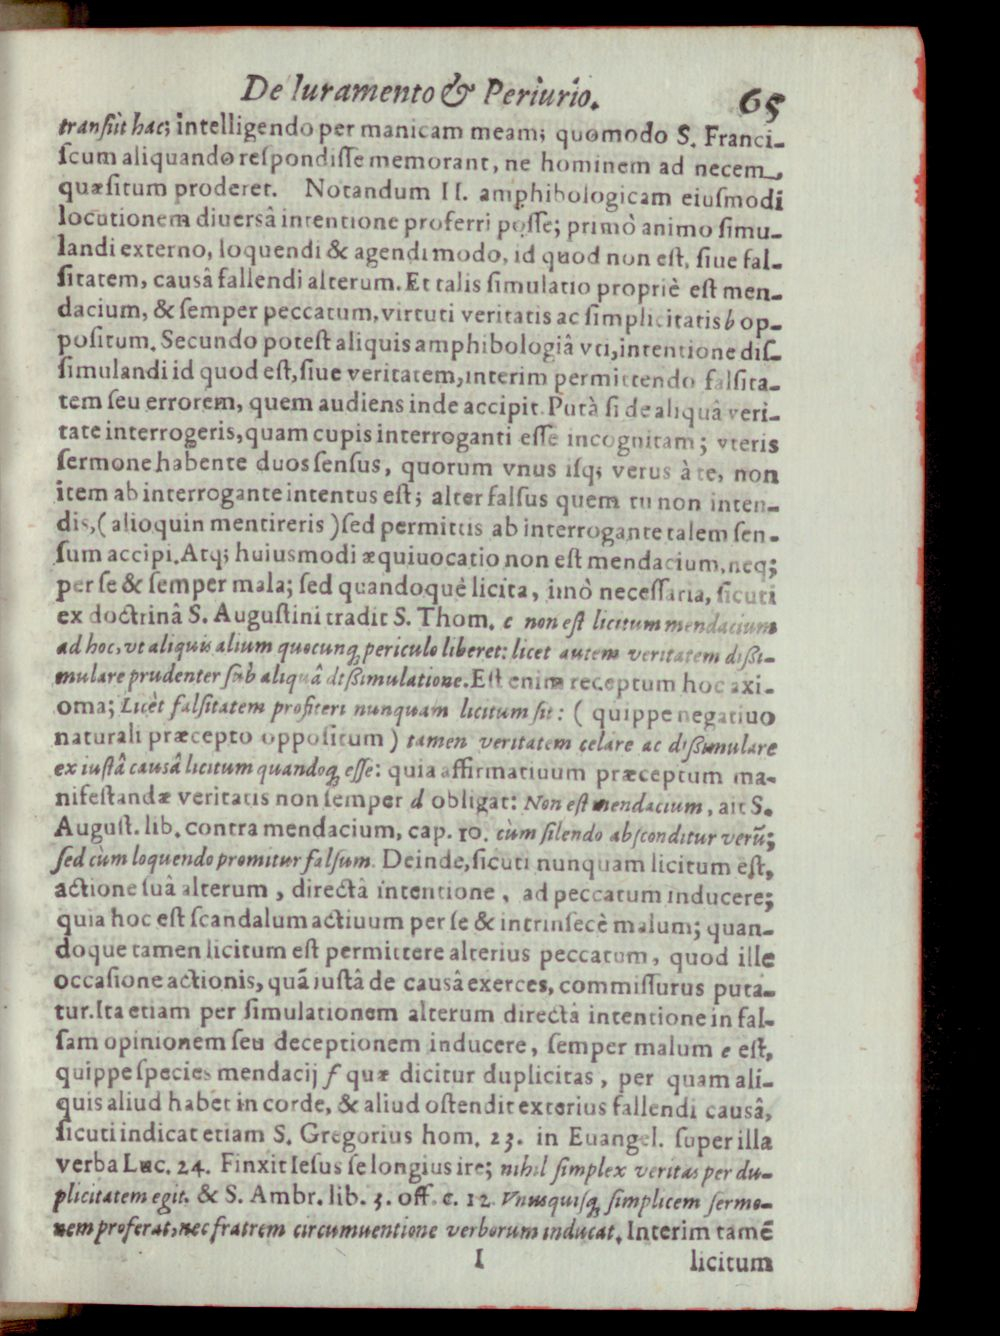 De Iuramento & Periurio. 65
transiit hac; intelligendo per manicam meam; quomodo S. Franci-
ſcum aliquando reſpondiſſe memorant, ne hominem ad necem
quæſitum proderet. Notandum II. amphibologicam eiuſmodi
locutionem diuersâ intentione proferri poſſe; primò animo ſimu-
landi externo, loquendi & agendi modo, id quod non eſt, ſiue fal-
ſitatem, causâ fallendi alterum. Et talis ſimulatio propriè eſt men-
dacium, & ſemper peccatum, virtuti veritatis ac ſimplicitatis b op-
poſitum. Secundo poteſt aliquis amphibologiâ vti, intentione diſ-
ſimulandi id quod eſt, ſiue veritatem, interim permittendo falſita-
tem ſeu errorem, quem audiens inde accipit. Putà ſi de aliquâ veri-
tate interrogeris, quam cupis interroganti eſſe incognitam; vteris
ſermone habente duos ſenſus, quorum vnus iſq; verus à te, non
item ab interrogante intentus eſt; alter falſus quem tu non inten-
dis, (alioquin mentireris) ſed permittis ab interrogante talem ſen-
ſum accipi. Atq; huiuſmodi æquiuocatio non eſt mendacium, neq;
per ſe & ſemper mala; ſed quandoque licita, imò neceſſaria, ſicuti
ex doctrinâ S. Auguſtini tradit S. Thom. c non eſt licitum mendacium
ad hoc, vt aliquis alium quocunq; periculo liberet: licet autem veritatem diſſi-
mulare prudenter ſub aliquâ diſſimulatione. Eſt enim receptum hoc axi-
oma; Licèt falſitatem profiteri nunquam licitum ſit: (quippe negatiuo
naturali præcepto oppoſitum) tamen veritatem celare ac diſſimulare
ex iuſtâ causâ licitum quandoq; eſſe: quia affirmatiuum præceptum ma-
nifeſtandæ veritatis non ſemper d obligat: Non eſt mendacium, ait S.
Auguſt. lib. contra mendacium, cap. 10. cùm ſilendo abſconditur verũ;
ſed cùm loquendo promitur falſum. Deinde, ſicuti nunquam licitum eſt,
actione ſuâ alterum, directâ intentione, ad peccatum inducere;
quia hoc eſt ſcandalum actiuum per ſe & intrinſecè malum; quan-
doque tamen licitum eſt permittere alterius peccatum, quod ille
occaſione actionis, quã iuſtâ de causâ exerces, commiſſurus puta-
tur. Ita etiam per ſimulationem alterum directâ intentione in fal-
ſam opinionem ſeu deceptionem inducere, ſemper malum e eſt,
quippe species mendacij f quæ dicitur duplicitas, per quam ali-
quis aliud habet in corde, & aliud oſtendit exterius fallendi causâ,
ſicuti indicat etiam S. Gregorius hom. 23. in Euangel. ſuper illa
verba Luc. 24. Finxit Ieſus ſe longius ire; nihil ſimplex veritas per du-
plicitatem egit. & S. Ambr. lib. 3. off. c. 12. Vnuſquiſq; ſimplicem ſermo-
nem proferat, nec fratrem circumuentione verborum inducat. Interim tamẽ
I licitum